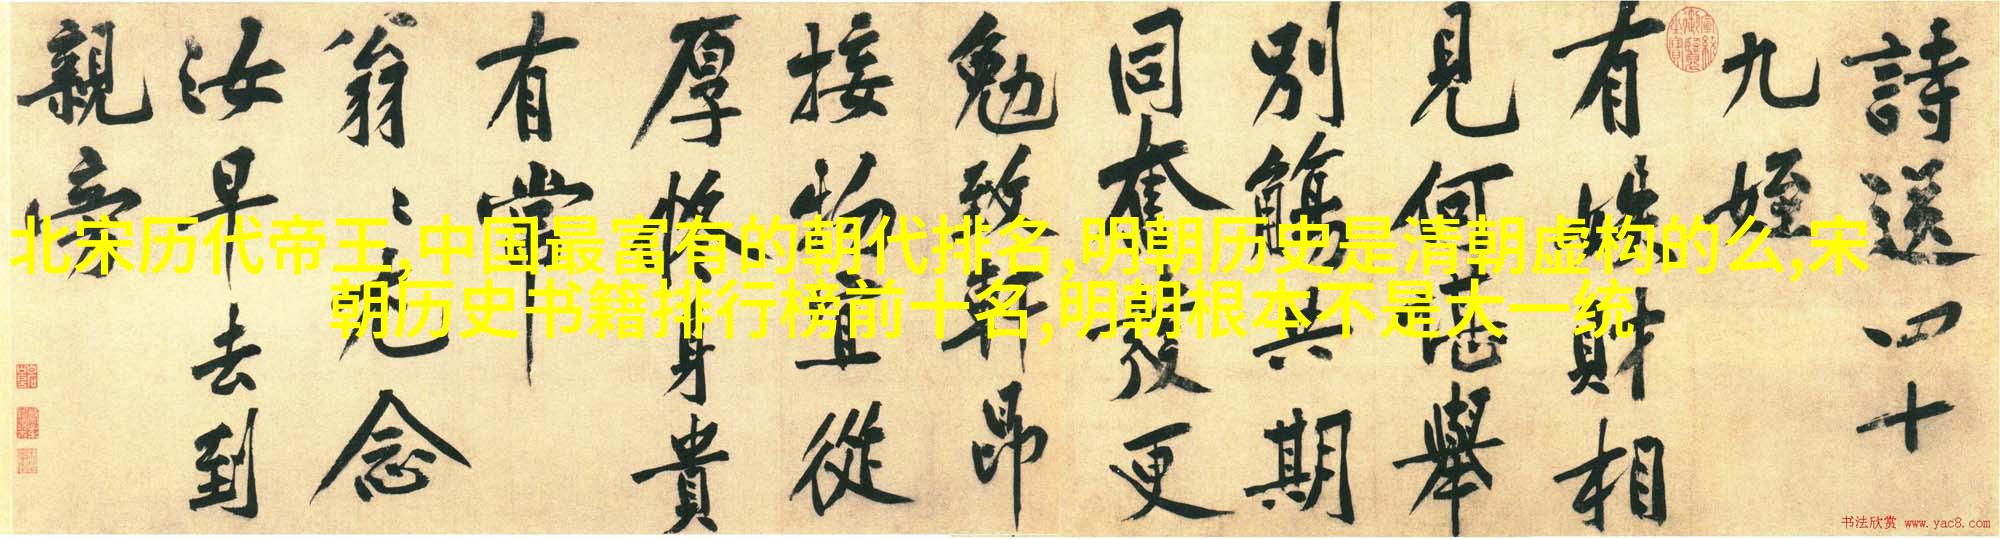 北宋历代帝王,中国最富有的朝代排名,明朝历史是清朝虚构的么,宋
朝历史书籍排行榜前十名,明朝根本不是大一统
詩送四十
九姪
有財相
見何堪舉
別觴共期
同奮發更
勉致軒昂
接物宜從
厚脩身貴
有常
翁〻尤念
汝早去到
親旁
书法欣赏 www.yac8.com